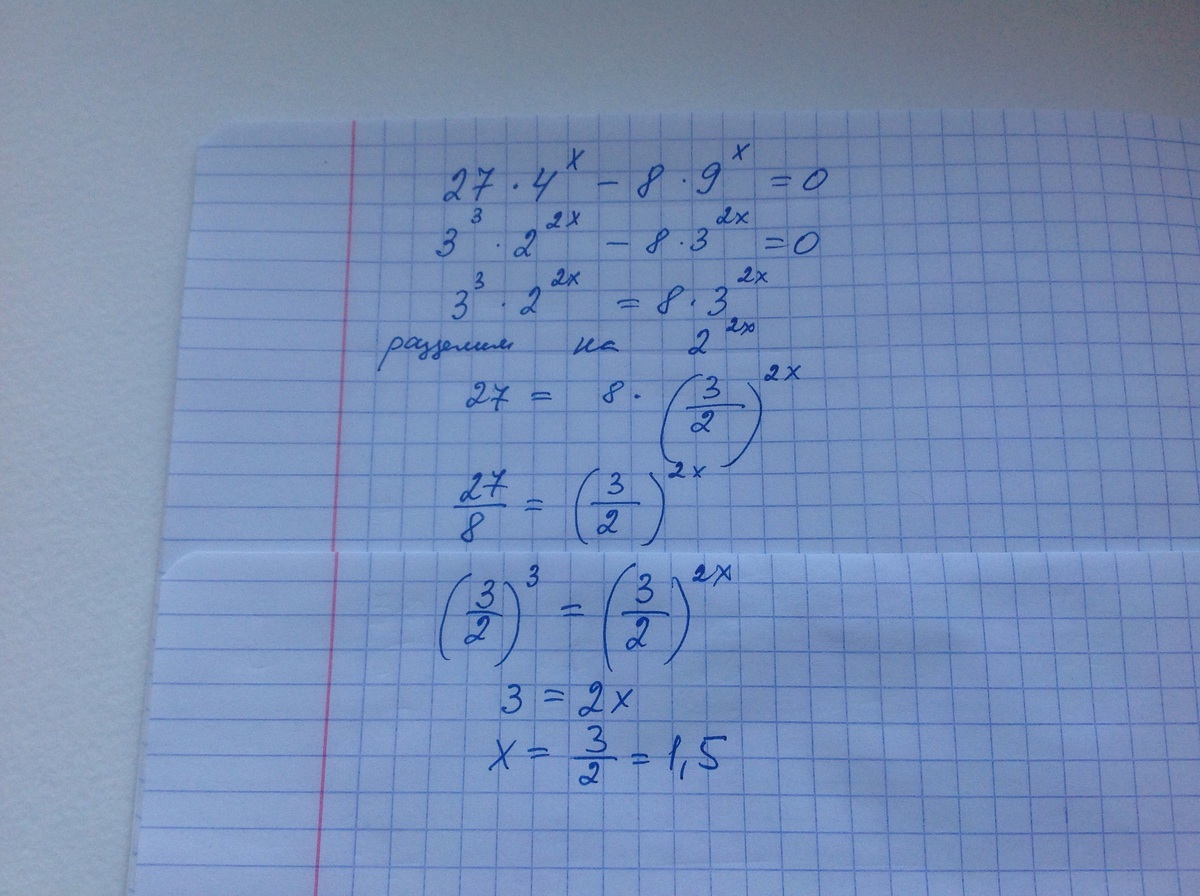 27 · 4^x − 8 · 9^x = 0
3^3 · 2^2x − 8 · 3^2x = 0
3^3 · 2^2x = 8 · 3^2x
разделим на 2^2x
27 = 8 · (3/2)^2x
27/8 = (3/2)^2x
(3/2)^3 = (3/2)^2x
3 = 2x
x = 3/2 = 1,5